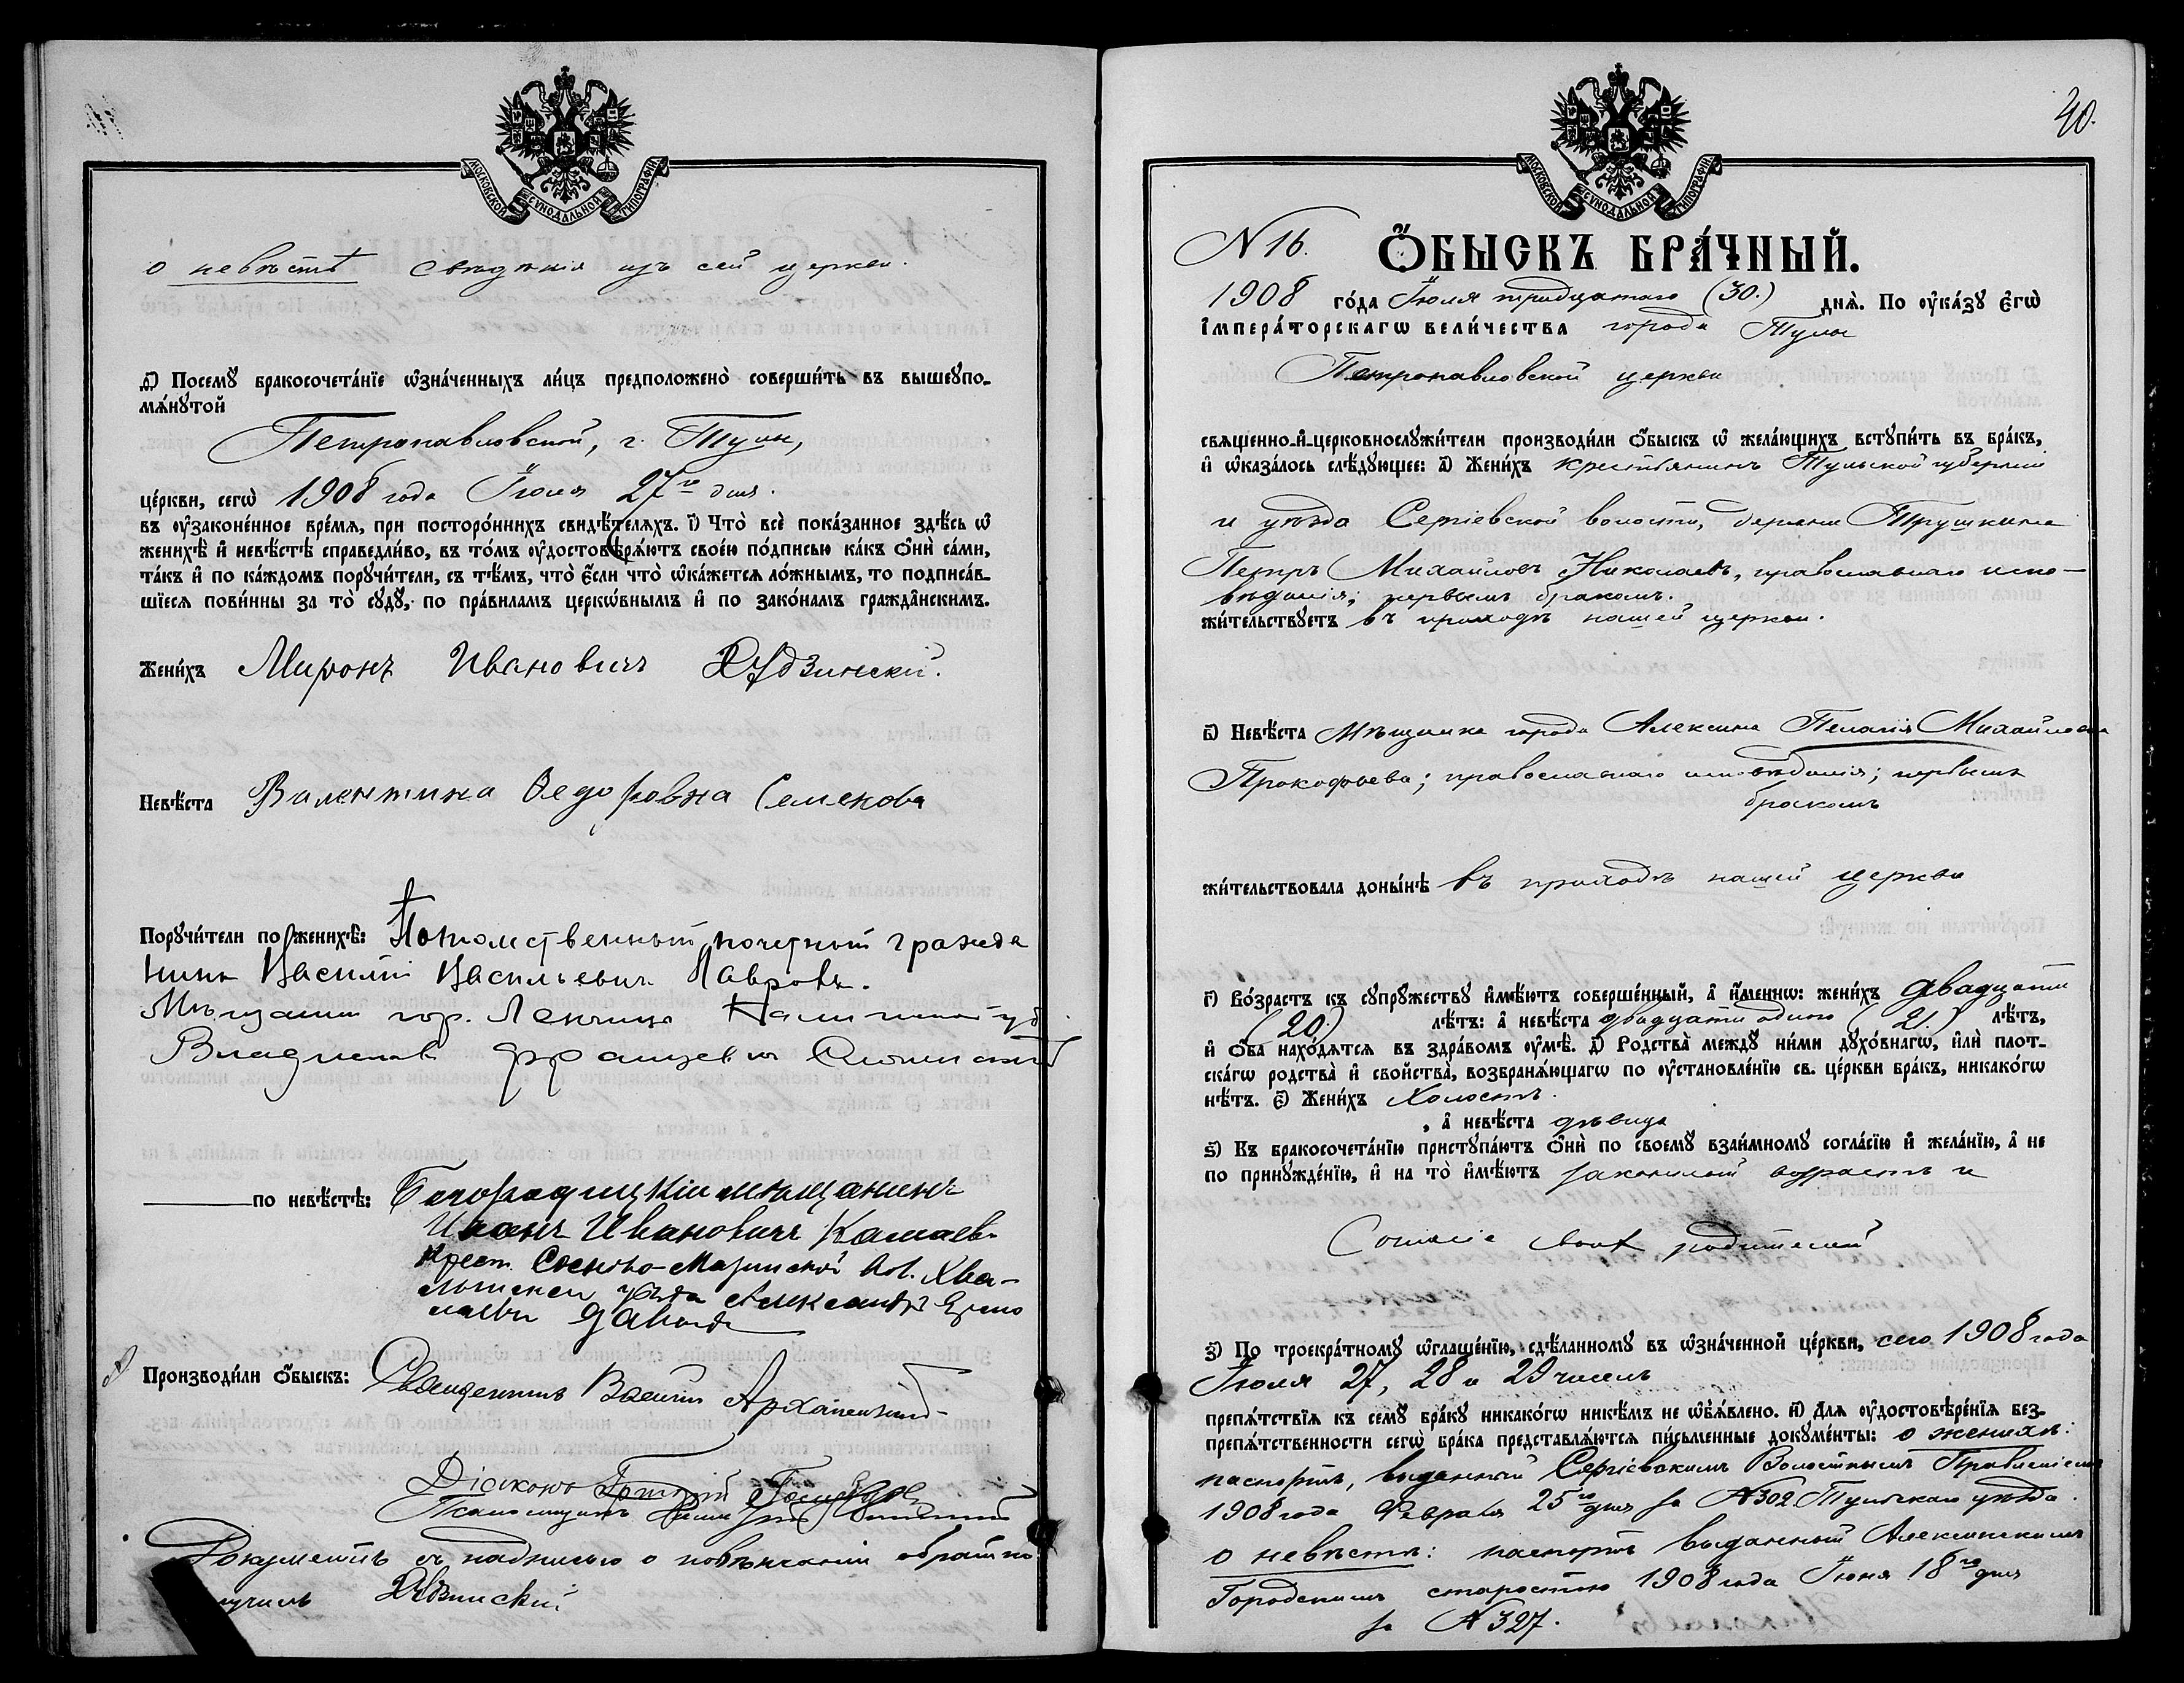 МОСКОВСКОЙ СѴНОДАЛЬНОЙ ТИПОГРАФІИ
о невѣстѣ свѣдѣнія изъ сей церкви.
д҃) Посемꙋ̀ бракосочета́нїе ѡ҆зна́ченныхъ ли́цъ предположено̀ соверши́ть въ вышеꙋпо-
мѧ́нꙋтой
Петропавловской, г. Тулы,
це́ркви, сегѡ̀ 1908 года Іюля 27го дня.
въ ᲂу҆зако́ненное вре́мѧ, при посторо́ннихъ свидѣ́телѧхъ. і҃) Что̀ всѐ пока́занное здѣ́сь ѡ҆
женихѣ̀ и҆ невѣ́стѣ справедли́во, въ то́мъ ᲂу҆достовѣрѧ́ютъ свое́ю по́дписью ка́къ ѻ҆нѝ са́ми,
та́къ и҆ по ка́ждомъ порꙋчи́тели, съ тѣ́мъ, что̀ є҆́сли что̀ ѡ҆ка́жетсѧ ло́жнымъ, то подписа́в-
шїесѧ пови́нны за то̀ сꙋдꙋ̀, по пра́виламъ церкѡ́внымъ и҆ по зако́намъ гражда́нскимъ.
Жени́хъ Миронъ Ивановичъ Дудзинскій.
Невѣ́ста Валентина Ѳедоровна Семенова
Порꙋчи́тели по женихѣ̀: Потомственный почетный гражда
нинъ Василій Васильевичъ Лавровъ.
Мѣщанинъ гор. Ленчица Калишской губ.
Владиславъ Францевичъ
по невѣ́стѣ: Богородицкій мѣщанинъ
Иванъ Ивановичъ Камаевъ
Крест. Сосново-Мазинской вол. Хва-
лынскаго уѣзда Александръ Ермо
лаевъ
Производи́ли ѻ҆́быскъ: Священникъ Василій Архангельскій
Діаконъ
Псаломщикъ
Документъ съ надписью о повѣнчаніи обратно
лучилъ Дудзинскій
МОСКОВСКОЙ СѴНОДАЛЬНОЙ ТИПОГРАФІИ
40.
N 16.
Ѻ҆́БЫСКЪ БРА́ЧНЫЙ.
1908 го́да Іюля тридцатаго (30.) днѧ̀. По ᲂу҆ка́зꙋ є҆гѡ̀
і҆мпера́торскагѡ вели́чества города Тулы
Петропавловской церкви
свѧщенно-и҆-церковнослꙋжи́тели производи́ли ѻ҆́быскъ ѡ҆ жела́ющихъ вступи́ть въ бра́къ,
и҆ ѡ҆каза́лось слѣ́дꙋющее: а҃) Жени́хъ крестьянинъ Тульской губерніи
и уѣзда Сергіевской волости, деревни Трушкина
Петръ Михайловъ Николаевъ, православнаго испо-
вѣданія; первымъ бракомъ.
жи́тельствꙋетъ въ приходѣ нашей церкви.
в҃) Невѣ́ста Мѣщанка города Алексина Пелагія Михайлова
Прокофьева; православнаго исповѣданія; первымъ
бракомъ
жи́тельствовала доны́нѣ въ приходѣ нашей церкви
г҃) Во́зрастъ къ сꙋпрꙋ́жествꙋ и҆мѣ́ютъ соверше́нный, а҆ и҆́менно: жени́хъ двадцати
(20.) лѣ́тъ: а҆ невѣ́ста двадцати одного (21.) лѣ́тъ,
и҆ ѻ҆́ба нахо́дѧтсѧ въ здра́вомъ ᲂу҆мѣ̀. д҃) Родства̀ междꙋ̀ ни́ми дꙋхо́внагѡ, и҆лѝ плот-
ска́гѡ родства̀ и҆ сво́йства̀, возбранѧ́ющагѡ по ᲂу҆становле́нїю св. це́ркви бра́къ, никако́гѡ
нѣ́тъ. є҃) Жени́хъ холостъ.
, а҆ невѣ́ста дѣвица
ѕ҃) Къ бракосочета́нїю приступа́ютъ ѻ҆нѝ по своемꙋ̀ взаи́мномꙋ согла́сїю и҆ жела́нїю, а҆ не
по принꙋжде́нїю, и҆ на то̀ и҆мѣ́ютъ законный возрастъ и
согласіе своихъ родителей
з҃) По троекра́тномꙋ ѡ҆глаше́нїю, сдѣ́ланномꙋ въ ѡ҆зна́ченной це́ркви, сего 1908 года
Іюля 27, 28 и 29 чиселъ
препѧ́тствїѧ къ семꙋ̀ бра́кꙋ никако́гѡ никѣ́мъ не ѡ҆б̾ѧ́влено. и҃) Длѧ ᲂу҆достовѣре́нїѧ без-
препѧ́тственности сегѡ̀ бра́ка представлѧ́ютсѧ пи́сьменные докꙋме́нты: о женихѣ:
паспортъ, выданный Сергіевскимъ Волостнымъ Правленіемъ
1908 года Февраля 25го дня за №302 Тульскаго уѣзда.
о невѣстѣ: паспортъ выданный Алексинскимъ
Городскимъ старостою 1908 года Іюня 18го дня
за №327.